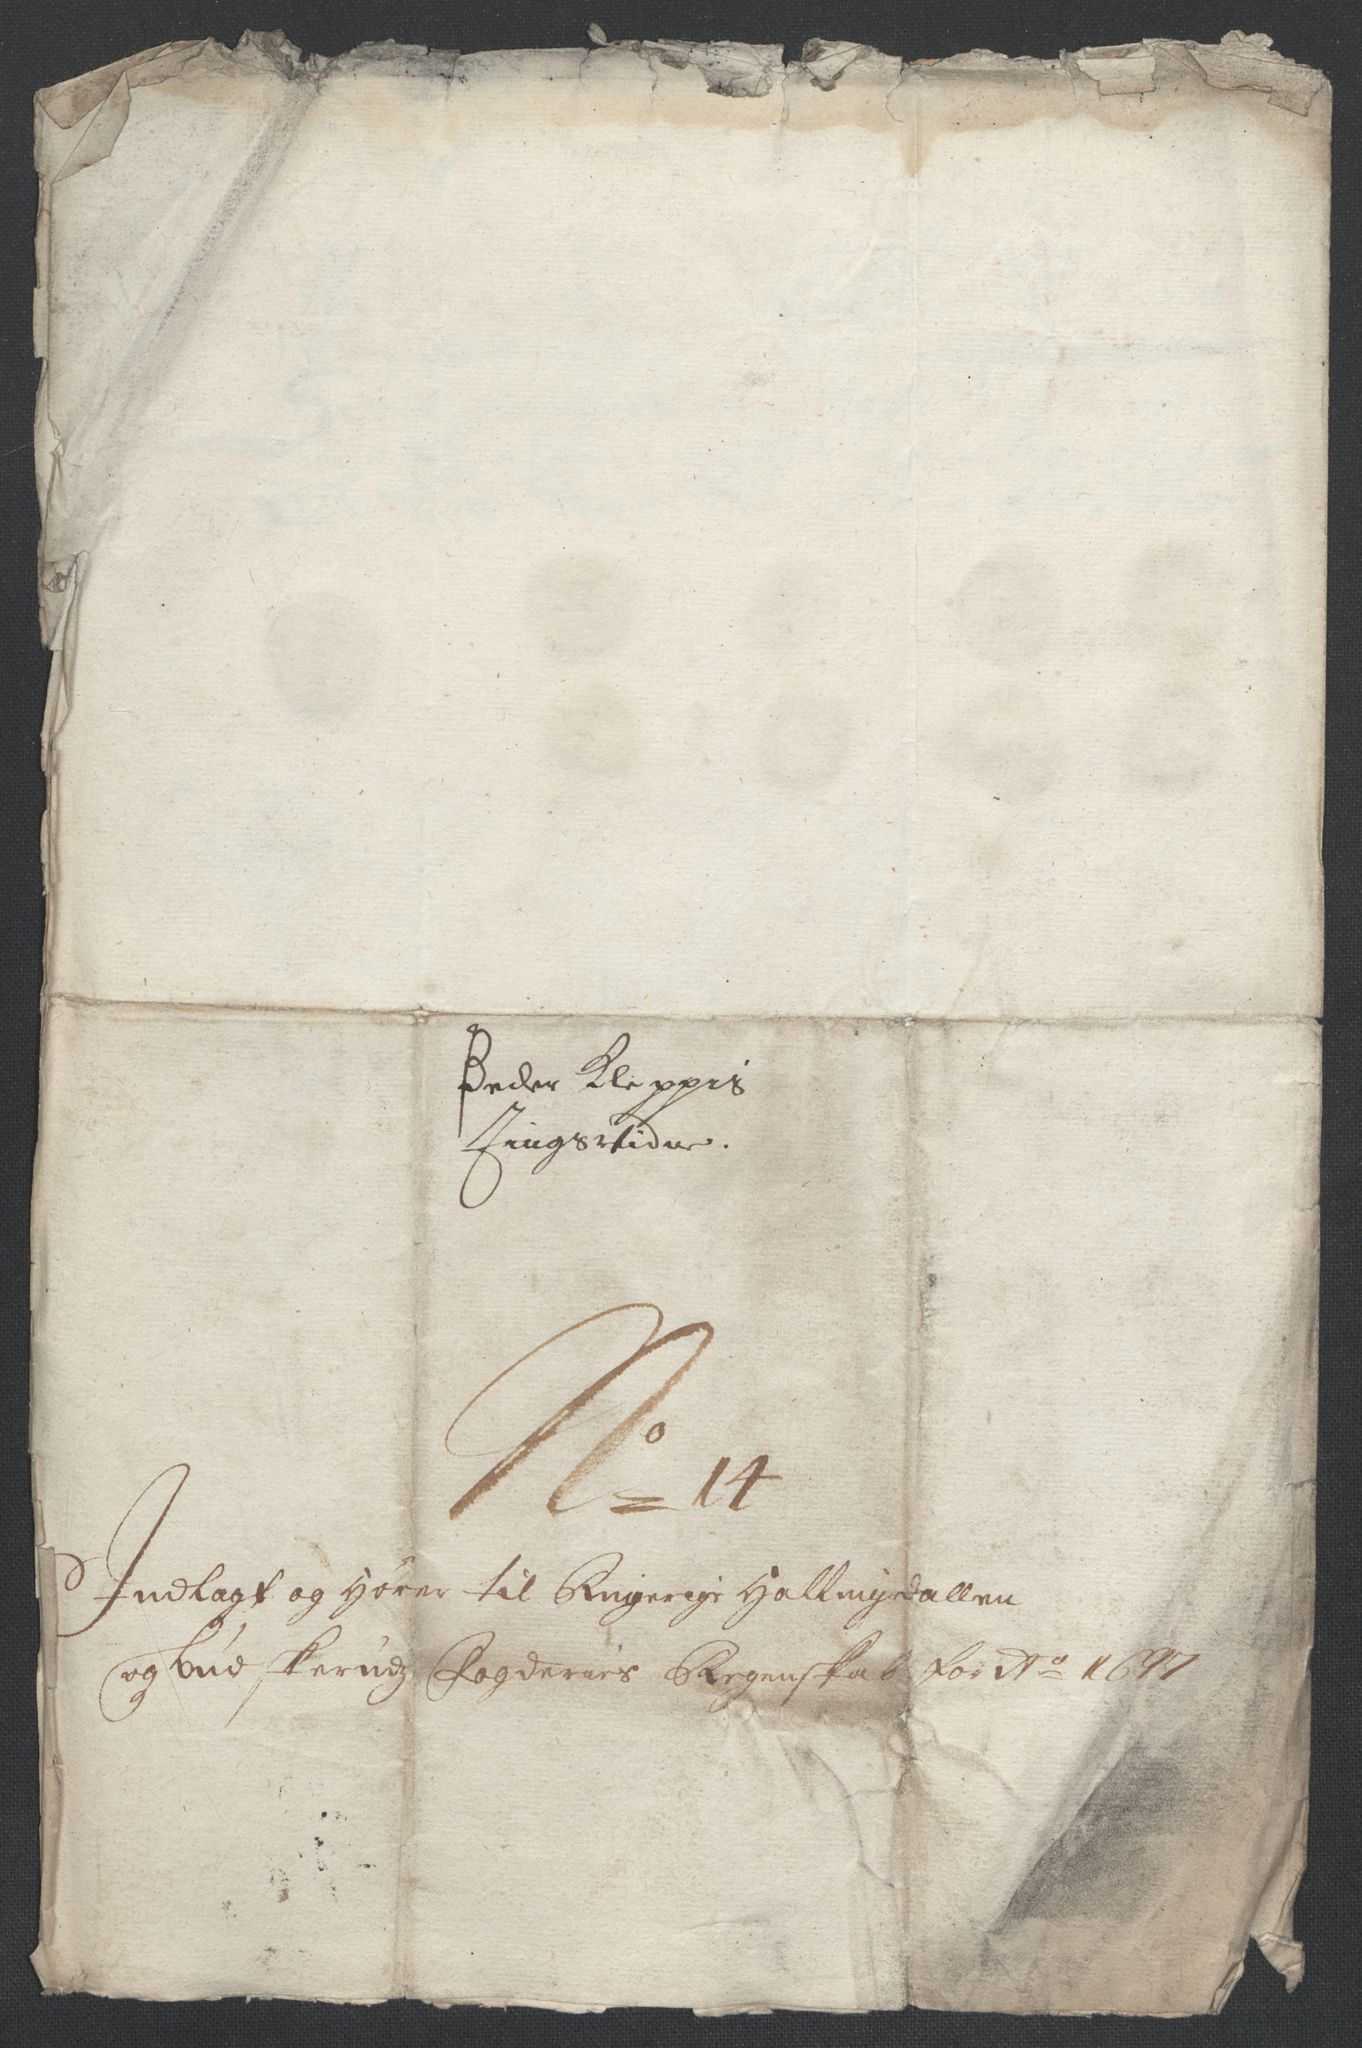 Peder Kleppis
Tingsvidne.
No 14
Indlagt og Hører til Ringerige Hallingdallen
og Budskeruds Fogderies Regenskab for Ao 1697